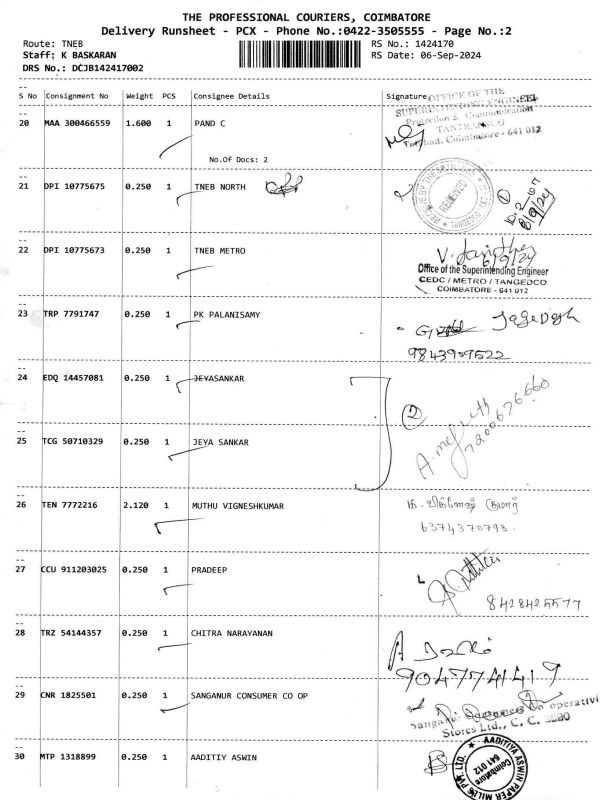 THE PROFESSIONAL COURIERS, COIMBATORE
Delivery Runsheet - PCX - Phone No.:0422-3505555 - Page No.:2
Route: TNEB RS No.: 1424170
Staff: K BASKARAN RS Date: 06-Sep-2024
DRS No.: DCJB142417002
S No Consignment No Weight PCS Consignee Details Signature
OFFICE OF THE
SUPERINTENDING ENGINEER
Protection & Communication
TANTRANSCO
Tatabad, Coimbatore - 641 012
20 MAA 300466559 1.600 1 PAND C
No.Of Docs: 2
21 DPI 10775675 0.250 1 TNEB NORTH
22 DPI 10775673 0.250 1 TNEB METRO
6/9/24
Office of the Superintending Engineer
CEDC / METRO / TANGEDCO
COIMBATORE - 641 012
23 TRP 7791747 0.250 1 PK PALANISAMY
9843909522
24 EDQ 14457081 0.250 1 JEYASANKAR
2
7200676660
25 TCG 50710329 0.250 1 JEYA SANKAR
26 TEN 7772216 2.120 1 MUTHU VIGNESHKUMAR
6374370793
27 CCU 911203025 0.250 1 PRADEEP
8428425577
28 TRZ 54144357 0.250 1 CHITRA NARAYANAN
9047741419
29 CNR 1825501 0.250 1 SANGANUR CONSUMER CO OP
Stores Ltd., C. C.
30 MTP 1318899 0.250 1 AADITIY ASWIN
AADITIYA ASWIN PAPER MILLS PVT. LTD.
Coimbatore
641 012